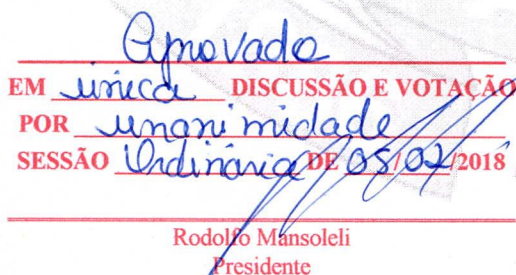 Aprovado
EM única DISCUSSÃO E VOTAÇÃO
POR unanimidade
SESSÃO Ordinária DE 05/02/2018
Rodolfo Mansoleli
Presidente